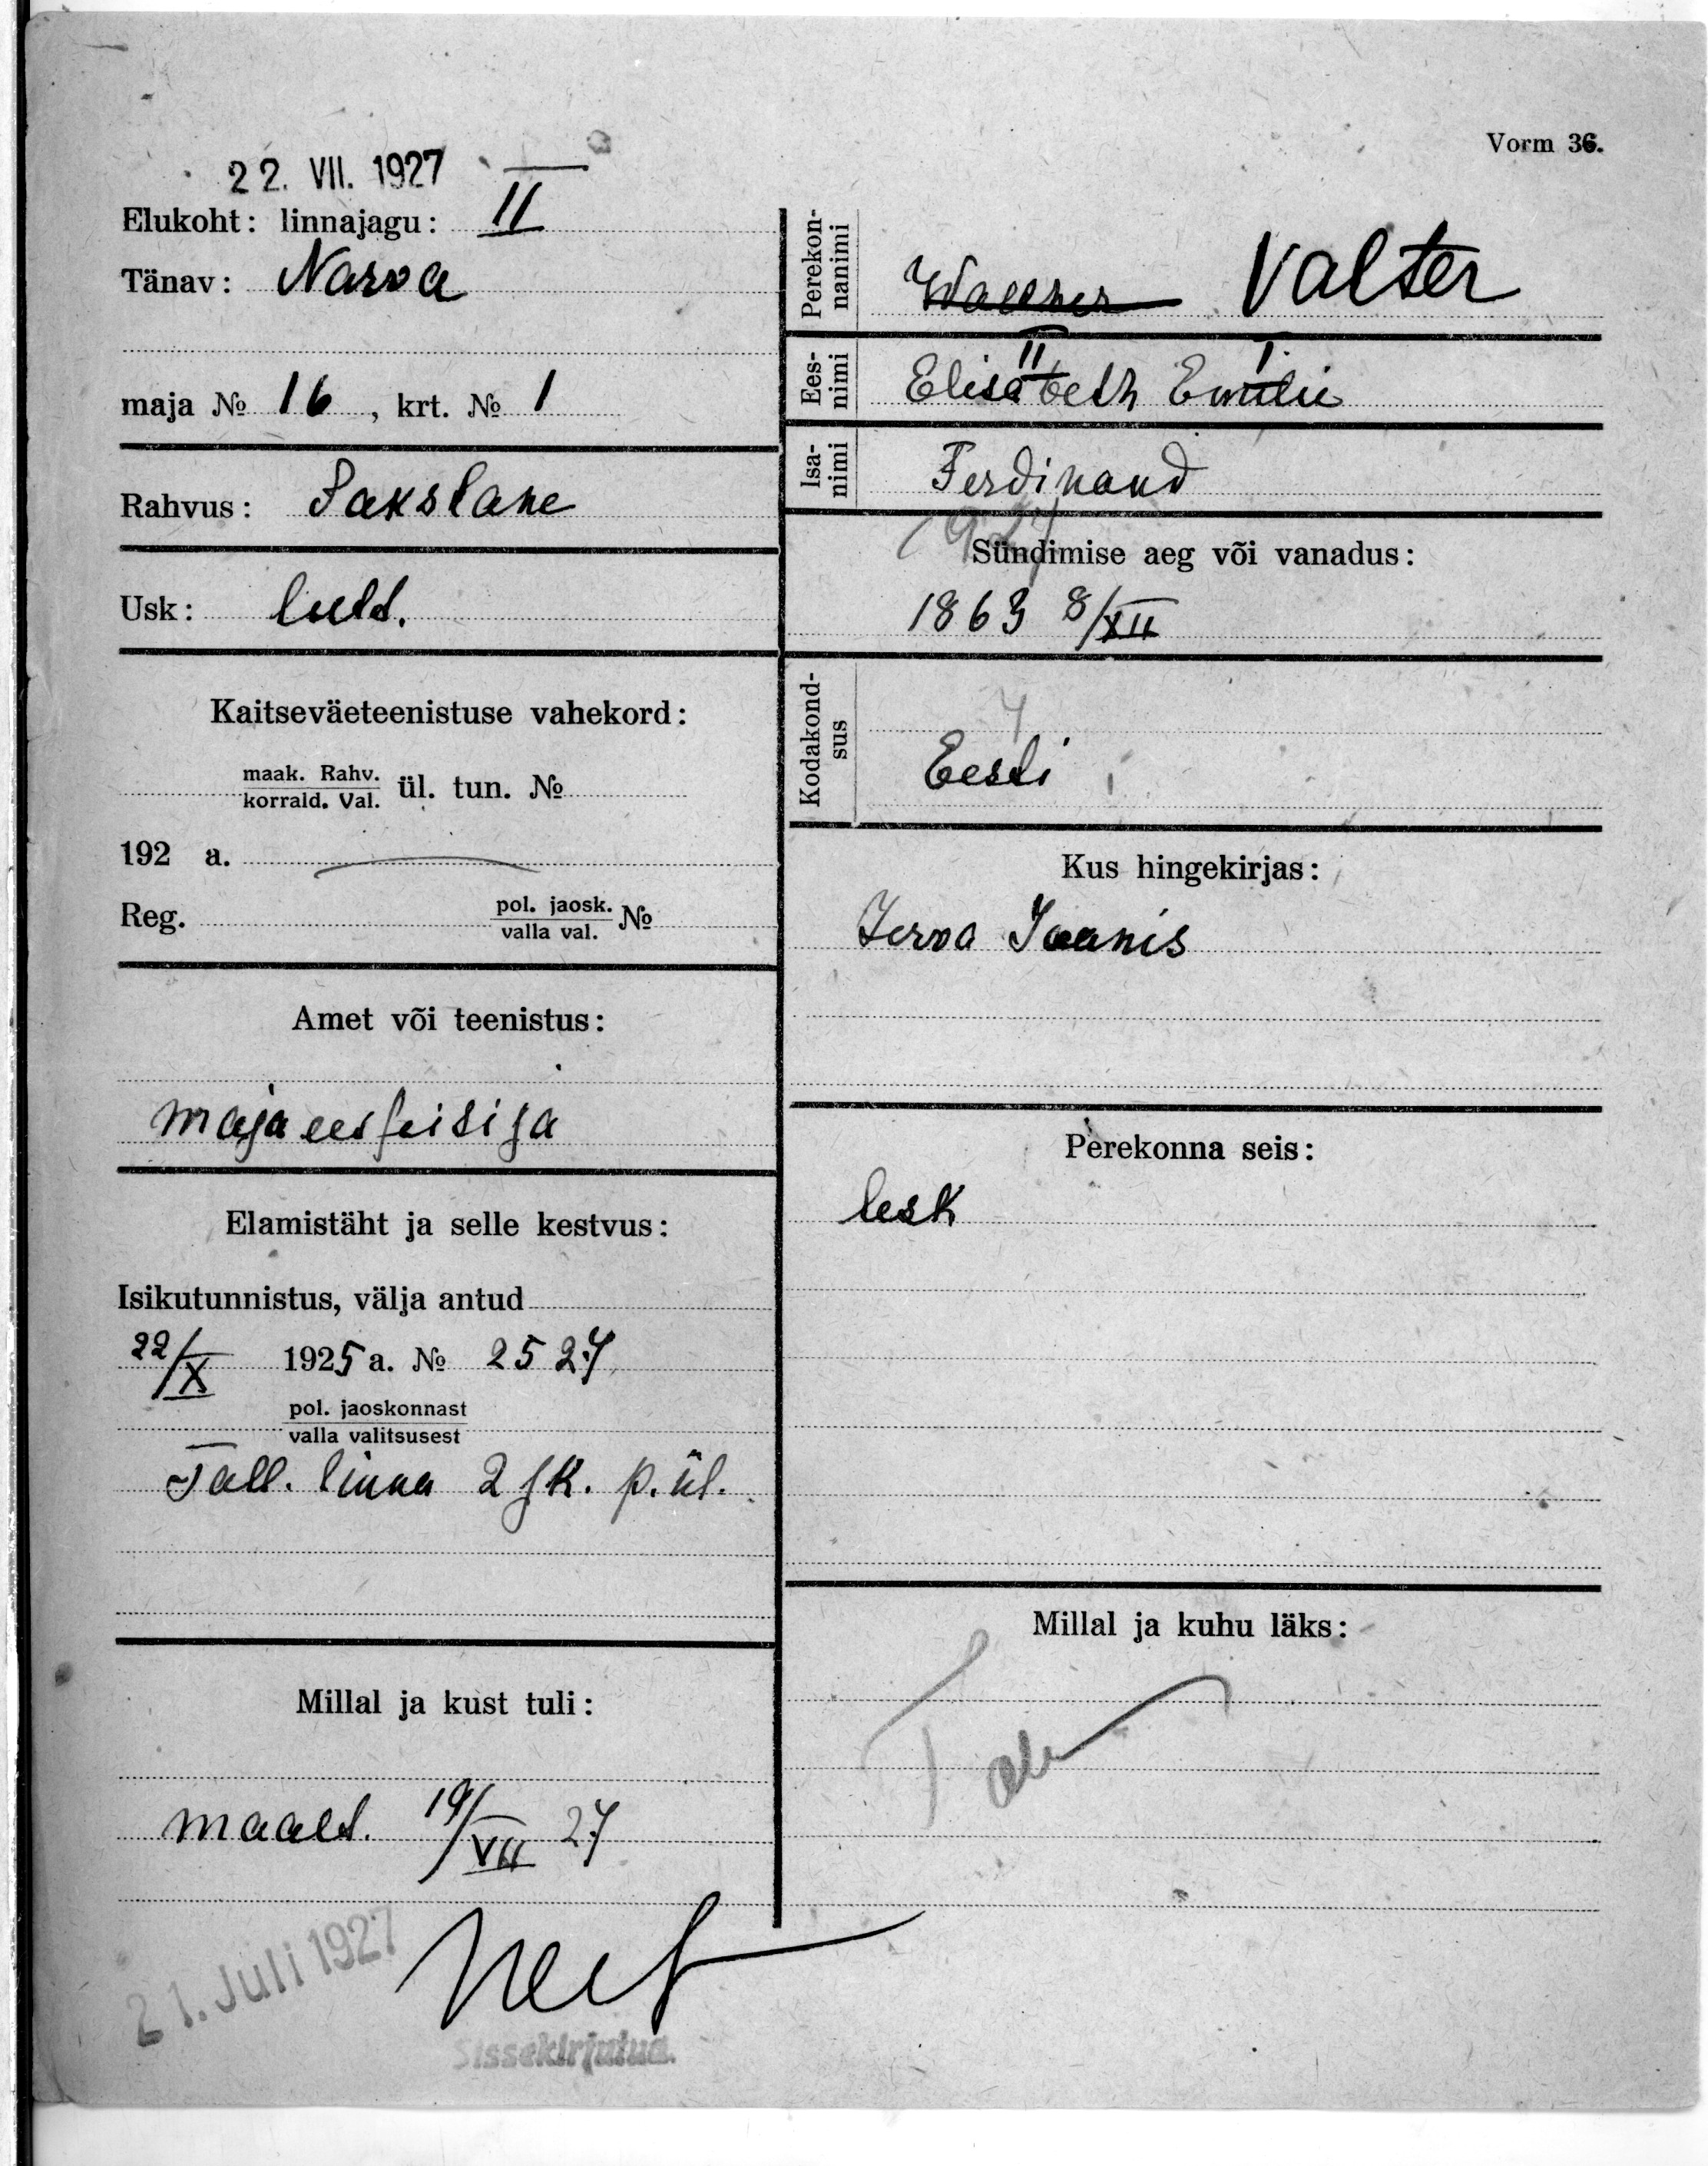 Vorm 36.
22. VII. 1927
Elukoht: linnajagu: II
Tänav: Narva
maja № 16, krt. № 1
Rahvus: Sakslane
Usk: lutt.
Kaitseväeteenistuse vahekord:
maak. Rahv.
korrald. Val. ül. tun. №
192 a.
Reg. pol. jaosk. №
valla val.
Amet või teenistus:
majaeesseisja
Elamistäht ja selle kestvus:
Isikutunnistus, välja antud
22/X 1925 a. № 2527
pol. jaoskonnast
valla valitsusest
Tall. linna 2 jsk. p. ül.
Millal ja kust tuli:
maalt. 19/VII 27
21. Juli 1927
Sissekirjutua.
Perekon-
nanimi
Valter
Ees-
nimi
II I
Elisabeth Emilie
Isa-
nimi
Ferdinand
1927
Sündimise aeg või vanadus:
1863 8/XII
Kodakond-
sus
Eesti
Kus hingekirjas:
Jerva Jaanis
Perekonna seis:
lesk
Millal ja kuhu läks: